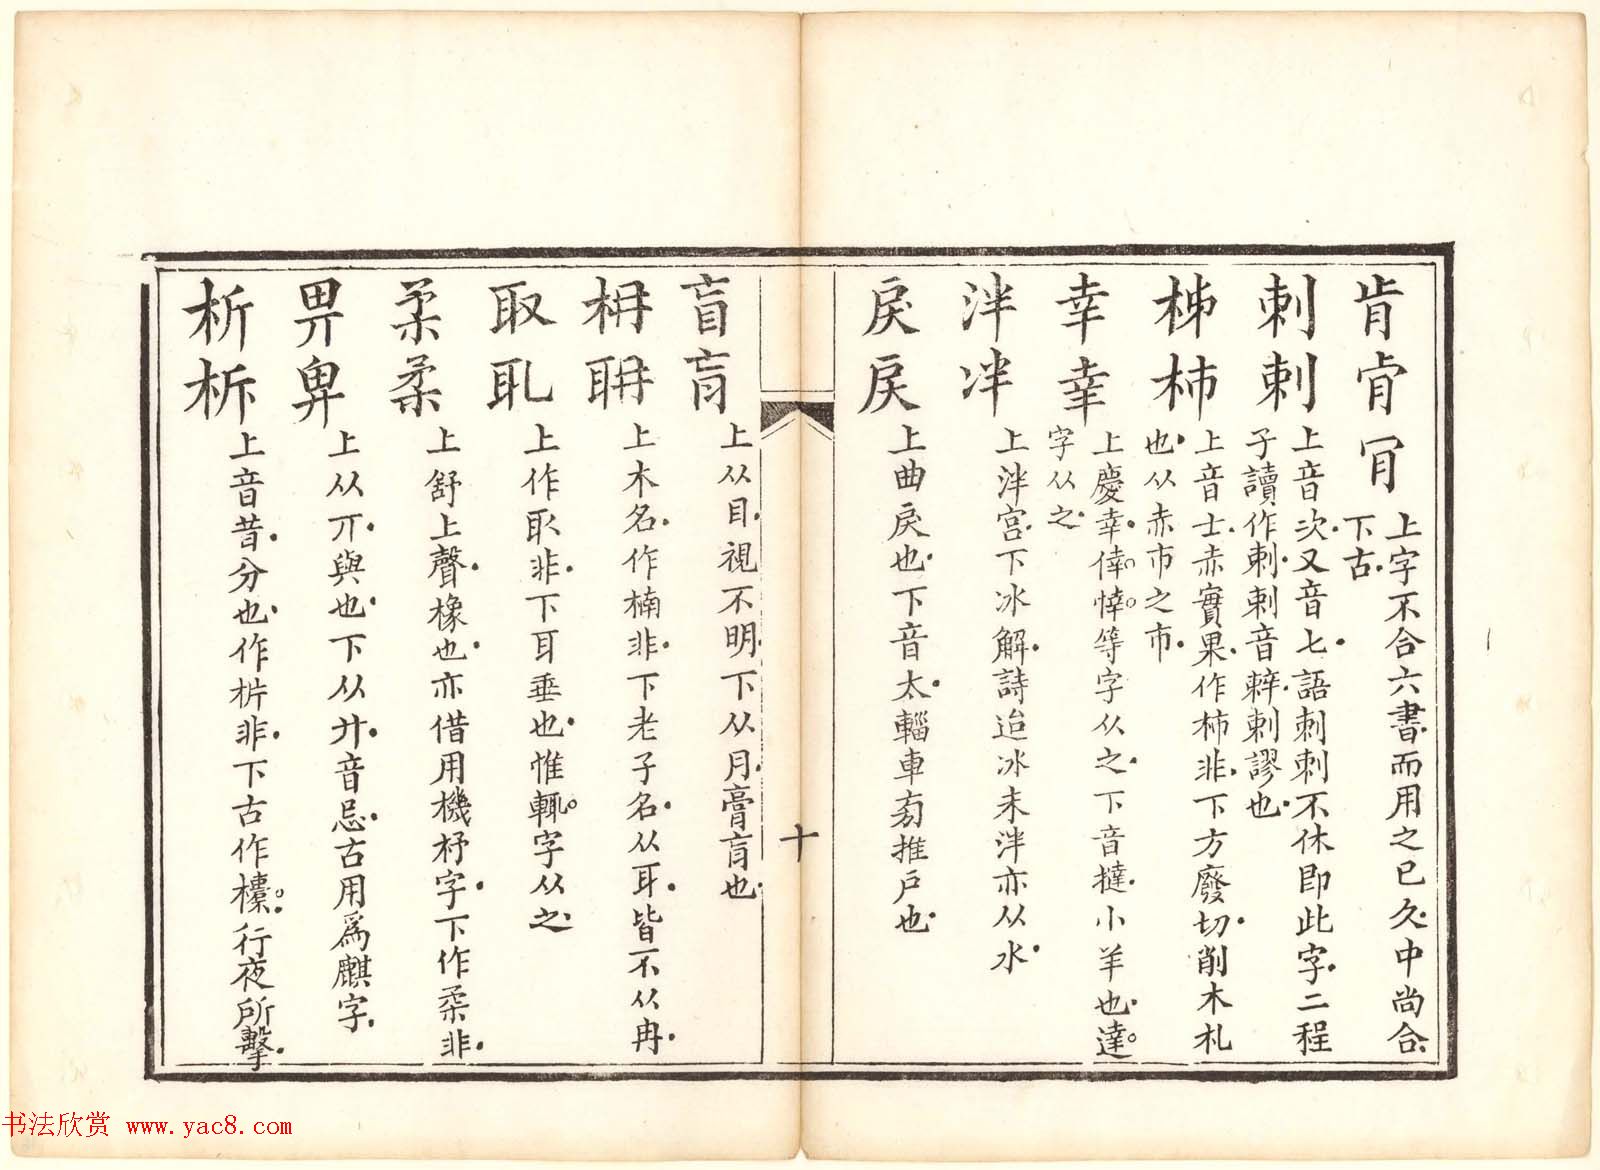 肯肎冃上字不合六書而用之已久中尚合
下古
刺剌上音次又音七語刺刺不休即此字二程
子讀作剌剌音辢剌謬也
柹杮上音士赤實果作柿非下方廢切削木札
也从赤市之市
幸𦍒上慶幸倖悻等字从之下音撻小羊也達
字从之
泮冸上泮宮下冰解詩迨冰未泮亦从水
戾戻上曲戾也下音太輜車旁推戶也
十
盲肓上从目視不明下从月膏肓也
枏耼上木名作楠非下老子名从耳皆不从冉
取耴上作耴非下耳垂也惟輒字从之
柔柔上舒上聲橡也亦借用機杼字下作柔非
畀𢍁上从丌與也下从廾音忌古用爲麒字
析㭊上音昔分也作枿非下古作㯱行夜所擊
书法欣赏 www.yac8.com